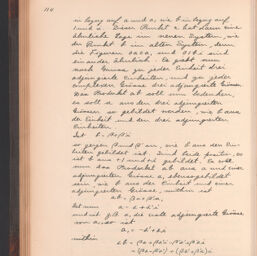 114
in bezug auf a und o, wie b in bezug auf
1 und o. Dieser Punkt c hat dann eine
ähnliche Lage im neuen System, wie
der Punkt b im alten System, denn
die Figuren oaca, und o1bi sind
einander ähnlich. Es giebt nun
nach Gauss zu jeder Einheit drei
adjungierte Einheiten, und zu jeder
complexen Grösse drei adjungierte Grössen.
Das Produkt ab soll nun bedeuten,
es soll a aus den drei adjungierten
Grössen so gebildet werden, wie b aus
der Einheit und den drei adjungierten
Einheiten.
Ist b = β+β'i
so zeigen β und β' an, wie b aus den Ein-
heiten gebildet ist. Sind beide positiv, so
ist b aus +1 und +i gebildet. Es soll
nun das Produkt ab aus a und einer
adjungierten Grösse a, ebenso gebildet
sein, wie b aus der Einheit und einer
adjungierten Grösse, mithin ist
ab = βa + β'a,
Ist nun a = α + α'i
und ist z.B. a, die erste adjungierte Grösse
von a, so ist
a, = -α' + αi
mithin
ab = βα + βα'i - β'α' + β'αi
= (βα - β'α') + (βα' + β'α)i